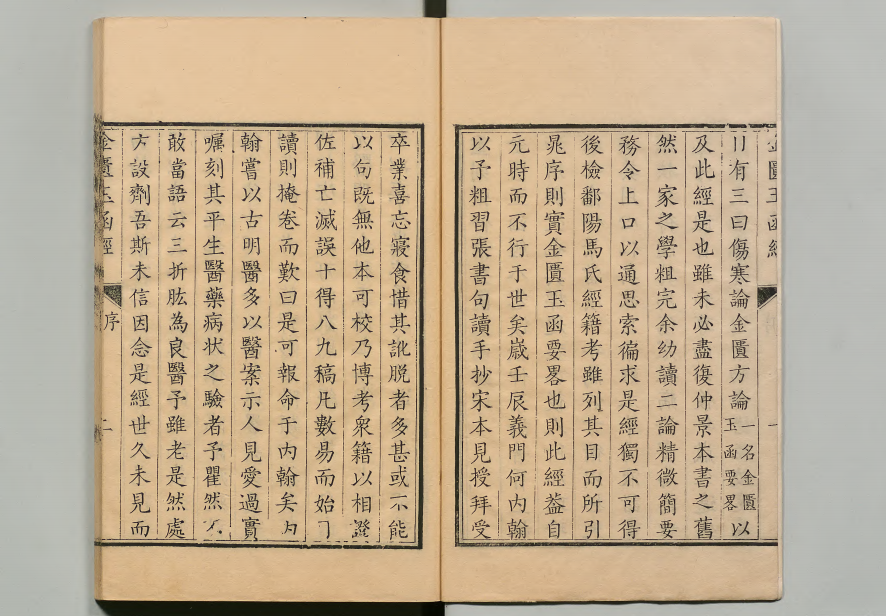 金匱玉函經 一
有三曰傷寒論金匱方論一名金匱玉函要畧以
及此經是也雖未必盡復仲景本書之舊
然一家之學粗完余幼讀二論精微簡要
務令上口以通思索徧求是經獨不可得
後檢鄱陽馬氏經籍考雖列其目而所引
晁序則實金匱玉函要畧也則此經葢自
元時而不行于世矣嵗壬辰義門何内翰
以予粗習張書句讀手抄宋本見授拜受
卒業喜忘寢食惜其訛脱者多甚或不能
以句既無他本可校乃博考衆籍以相證
佐補亡滅誤十得八九稿凡數易而始
讀則掩卷而歎曰是可報命于内翰矣内
翰嘗以古明醫多以醫案示人見愛過實
囑刻其平生醫藥病状之驗者予瞿然不
敢當語云三折肱為良醫予雖老是然處
方設劑吾斯未信因念是經世久未見而
金匱玉函經 序 二